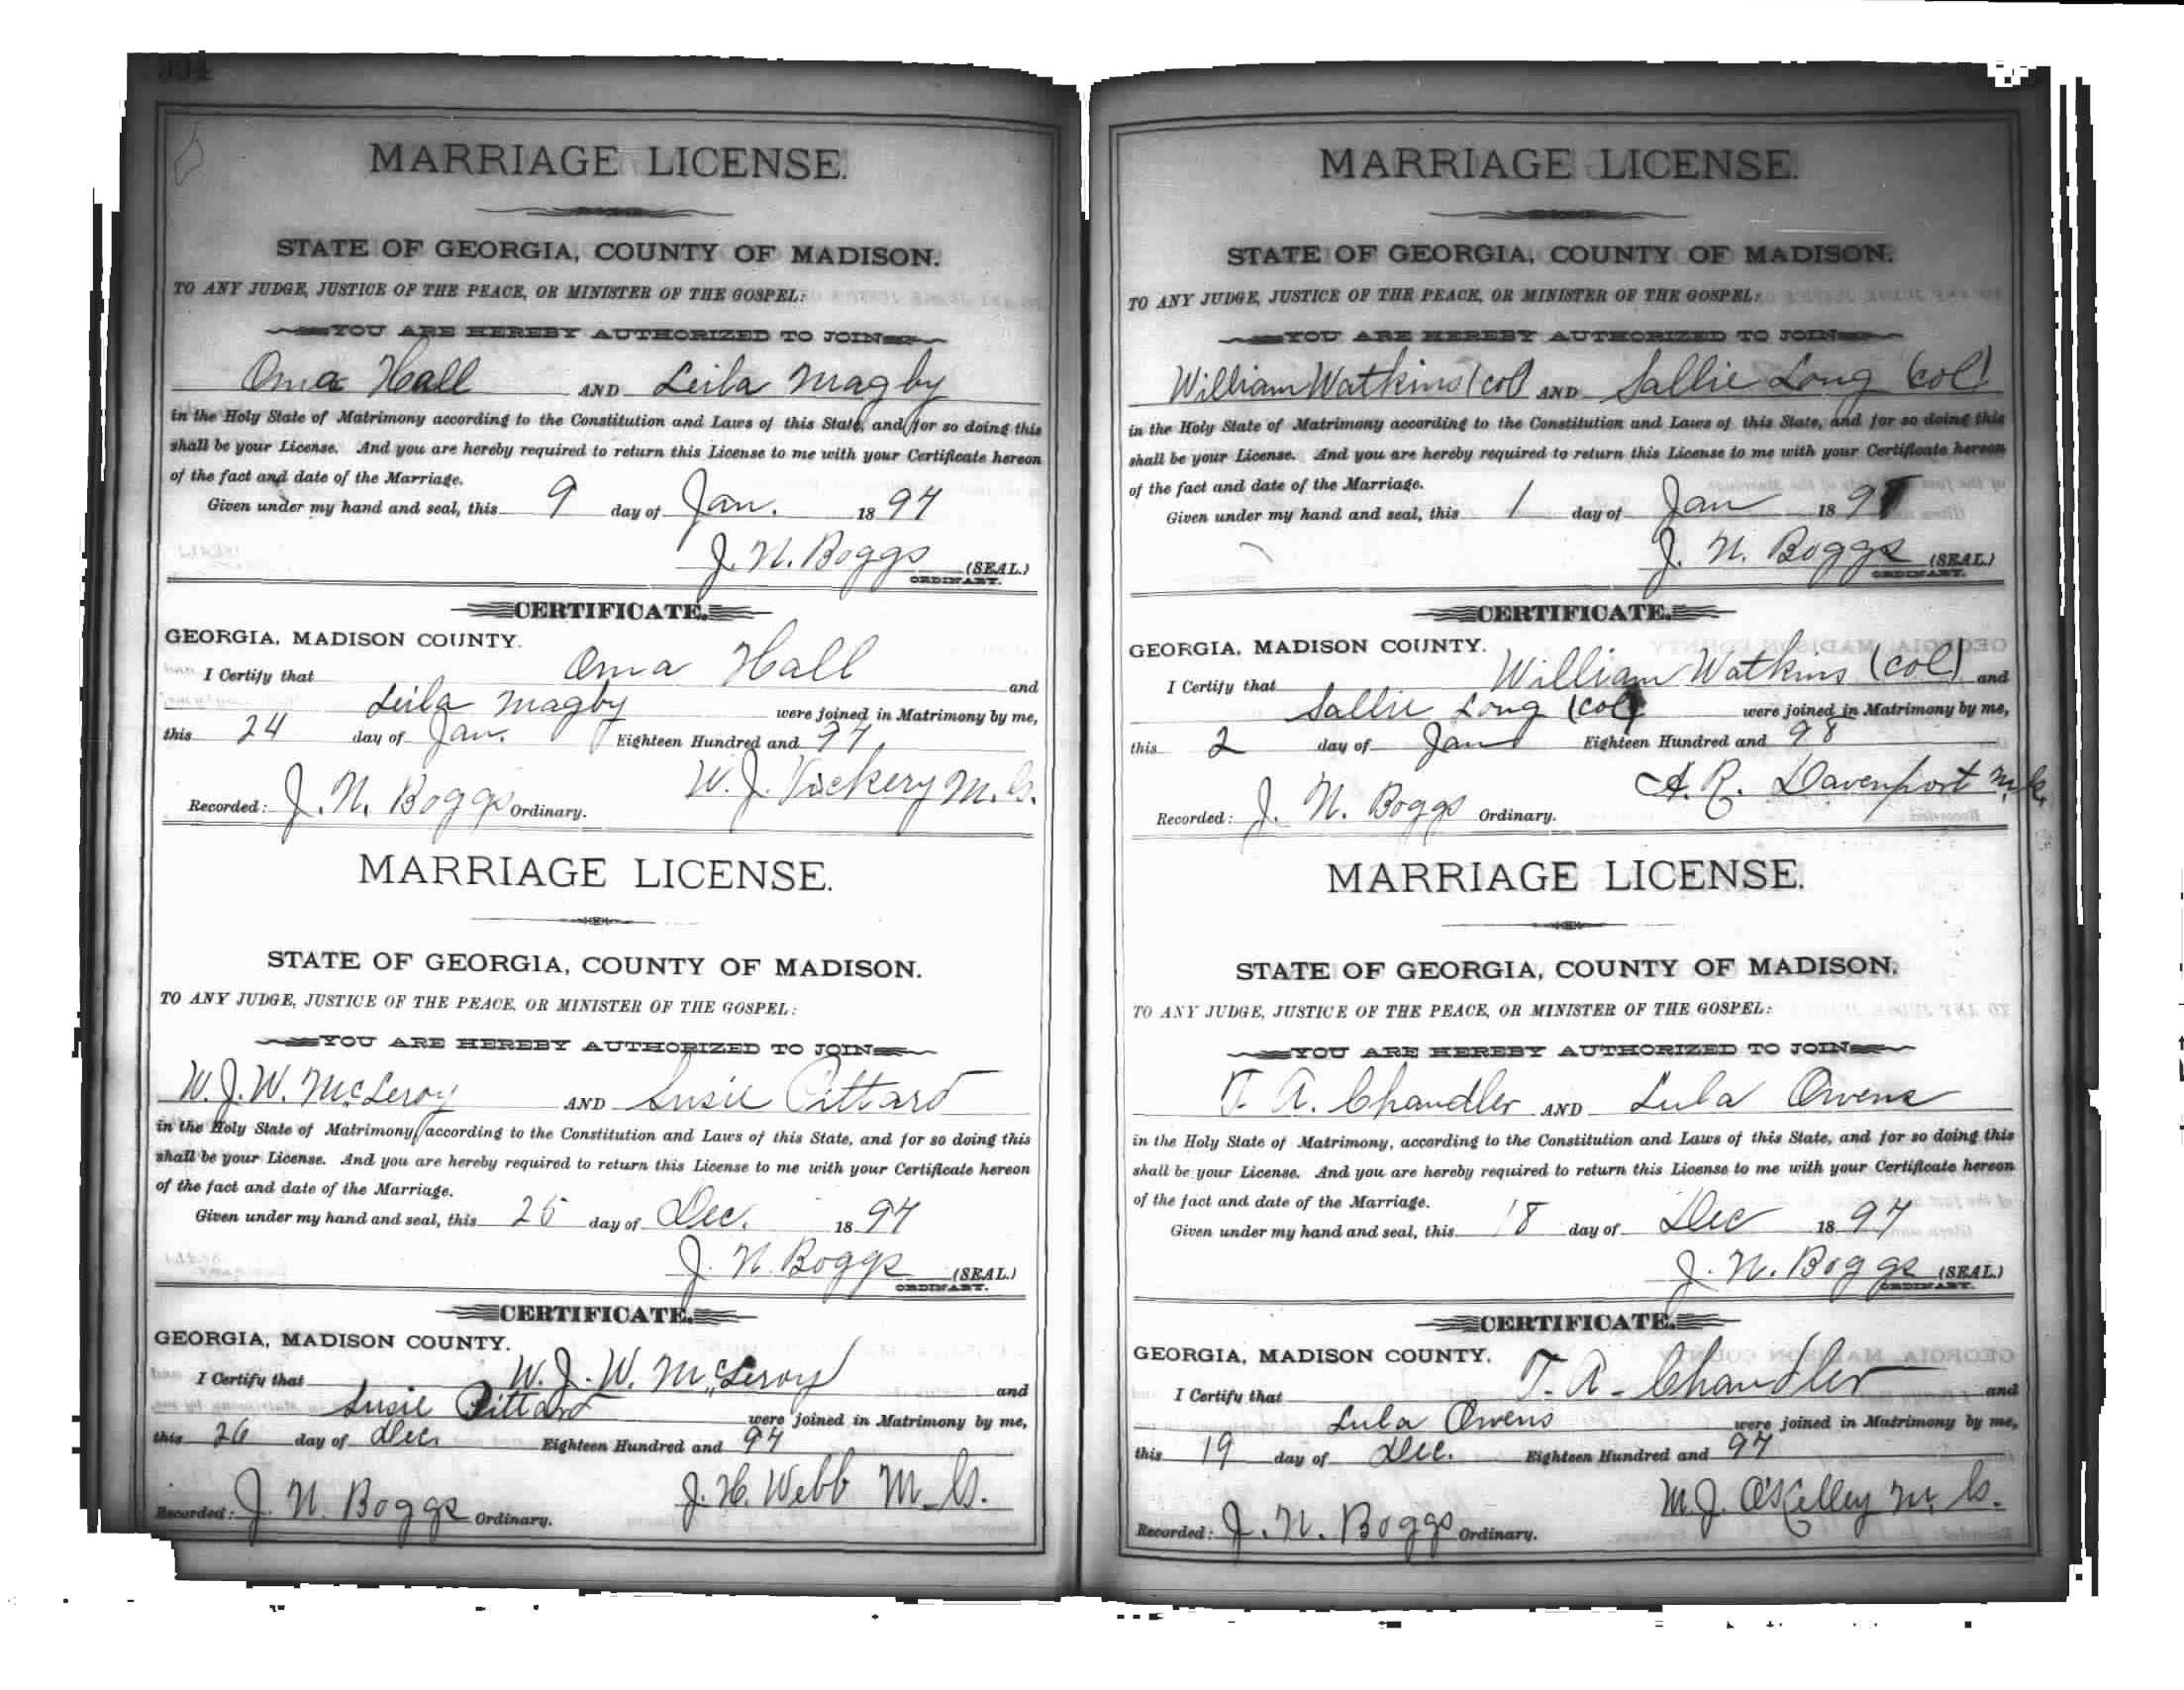 MARRIAGE LICENSE.
STATE OF GEORGIA, COUNTY OF MADISON.
TO ANY JUDGE, JUSTICE OF THE PEACE, OR MINISTER OF THE GOSPEL:
YOU ARE HEREBY AUTHORIZED TO JOIN
Oma Hall AND Leila Magby
in the Holy State of Matrimony according to the Constitution and Laws of this State, and for so doing this
shall be your License. And you are hereby required to return this License to me with your Certificate hereon
of the fact and date of the Marriage.
Given under my hand and seal, this 9 day of Jan. 1897
J. N. Boggs (SEAL.)
ORDINARY.
CERTIFICATE.
GEORGIA, MADISON COUNTY.
I Certify that Oma Hall and
Leila Magby were joined in Matrimony by me,
this 24 day of Jan. Eighteen Hundred and 97,
W. J. Vickery M. G.
Recorded: J. N. Boggs Ordinary.
MARRIAGE LICENSE.
STATE OF GEORGIA, COUNTY OF MADISON.
TO ANY JUDGE, JUSTICE OF THE PEACE, OR MINISTER OF THE GOSPEL:
YOU ARE HEREBY AUTHORIZED TO JOIN
W. J. W. McLeroy AND Susie Pittard
in the Holy State of Matrimony according to the Constitution and Laws of this State, and for so doing this
shall be your License. And you are hereby required to return this License to me with your Certificate hereon
of the fact and date of the Marriage.
Given under my hand and seal, this 25 day of Dec. 1897
J. N. Boggs (SEAL.)
ORDINARY.
CERTIFICATE.
GEORGIA, MADISON COUNTY.
I Certify that W. J. W. McLeroy and
Susie Pittard were joined in Matrimony by me,
this 26 day of Dec. Eighteen Hundred and 97
J. H. Webb M. G.
Recorded: J. N. Boggs Ordinary.
MARRIAGE LICENSE.
STATE OF GEORGIA, COUNTY OF MADISON.
TO ANY JUDGE, JUSTICE OF THE PEACE, OR MINISTER OF THE GOSPEL:
YOU ARE HEREBY AUTHORIZED TO JOIN
William Watkins (col) AND Sallie Long (col)
in the Holy State of Matrimony according to the Constitution and Laws of this State, and for so doing this
shall be your License. And you are hereby required to return this License to me with your Certificate hereon
of the fact and date of the Marriage.
Given under my hand and seal, this 1 day of Jan 18
J. N. Boggs (SEAL.)
ORDINARY.
CERTIFICATE.
GEORGIA, MADISON COUNTY.
I Certify that William Watkins (col) and
Sallie Long (col) were joined in Matrimony by me,
this 2 day of Jan Eighteen Hundred and 98
A. R. Davenport M. G.
Recorded: J. N. Boggs Ordinary.
MARRIAGE LICENSE.
STATE OF GEORGIA, COUNTY OF MADISON.
TO ANY JUDGE, JUSTICE OF THE PEACE, OR MINISTER OF THE GOSPEL:
YOU ARE HEREBY AUTHORIZED TO JOIN
T. A. Chandler AND Lula Owens
in the Holy State of Matrimony, according to the Constitution and Laws of this State, and for so doing this
shall be your License. And you are hereby required to return this License to me with your Certificate hereon
of the fact and date of the Marriage.
Given under my hand and seal, this 18 day of Dec 1897
J. N. Boggs (SEAL.)
ORDINARY.
CERTIFICATE.
GEORGIA, MADISON COUNTY.
I Certify that T. A. Chandler and
Lula Owens were joined in Matrimony by me,
this 19 day of Dec. Eighteen Hundred and 97
M. J. O'Kelley M. G.
Recorded: J. N. Boggs Ordinary.